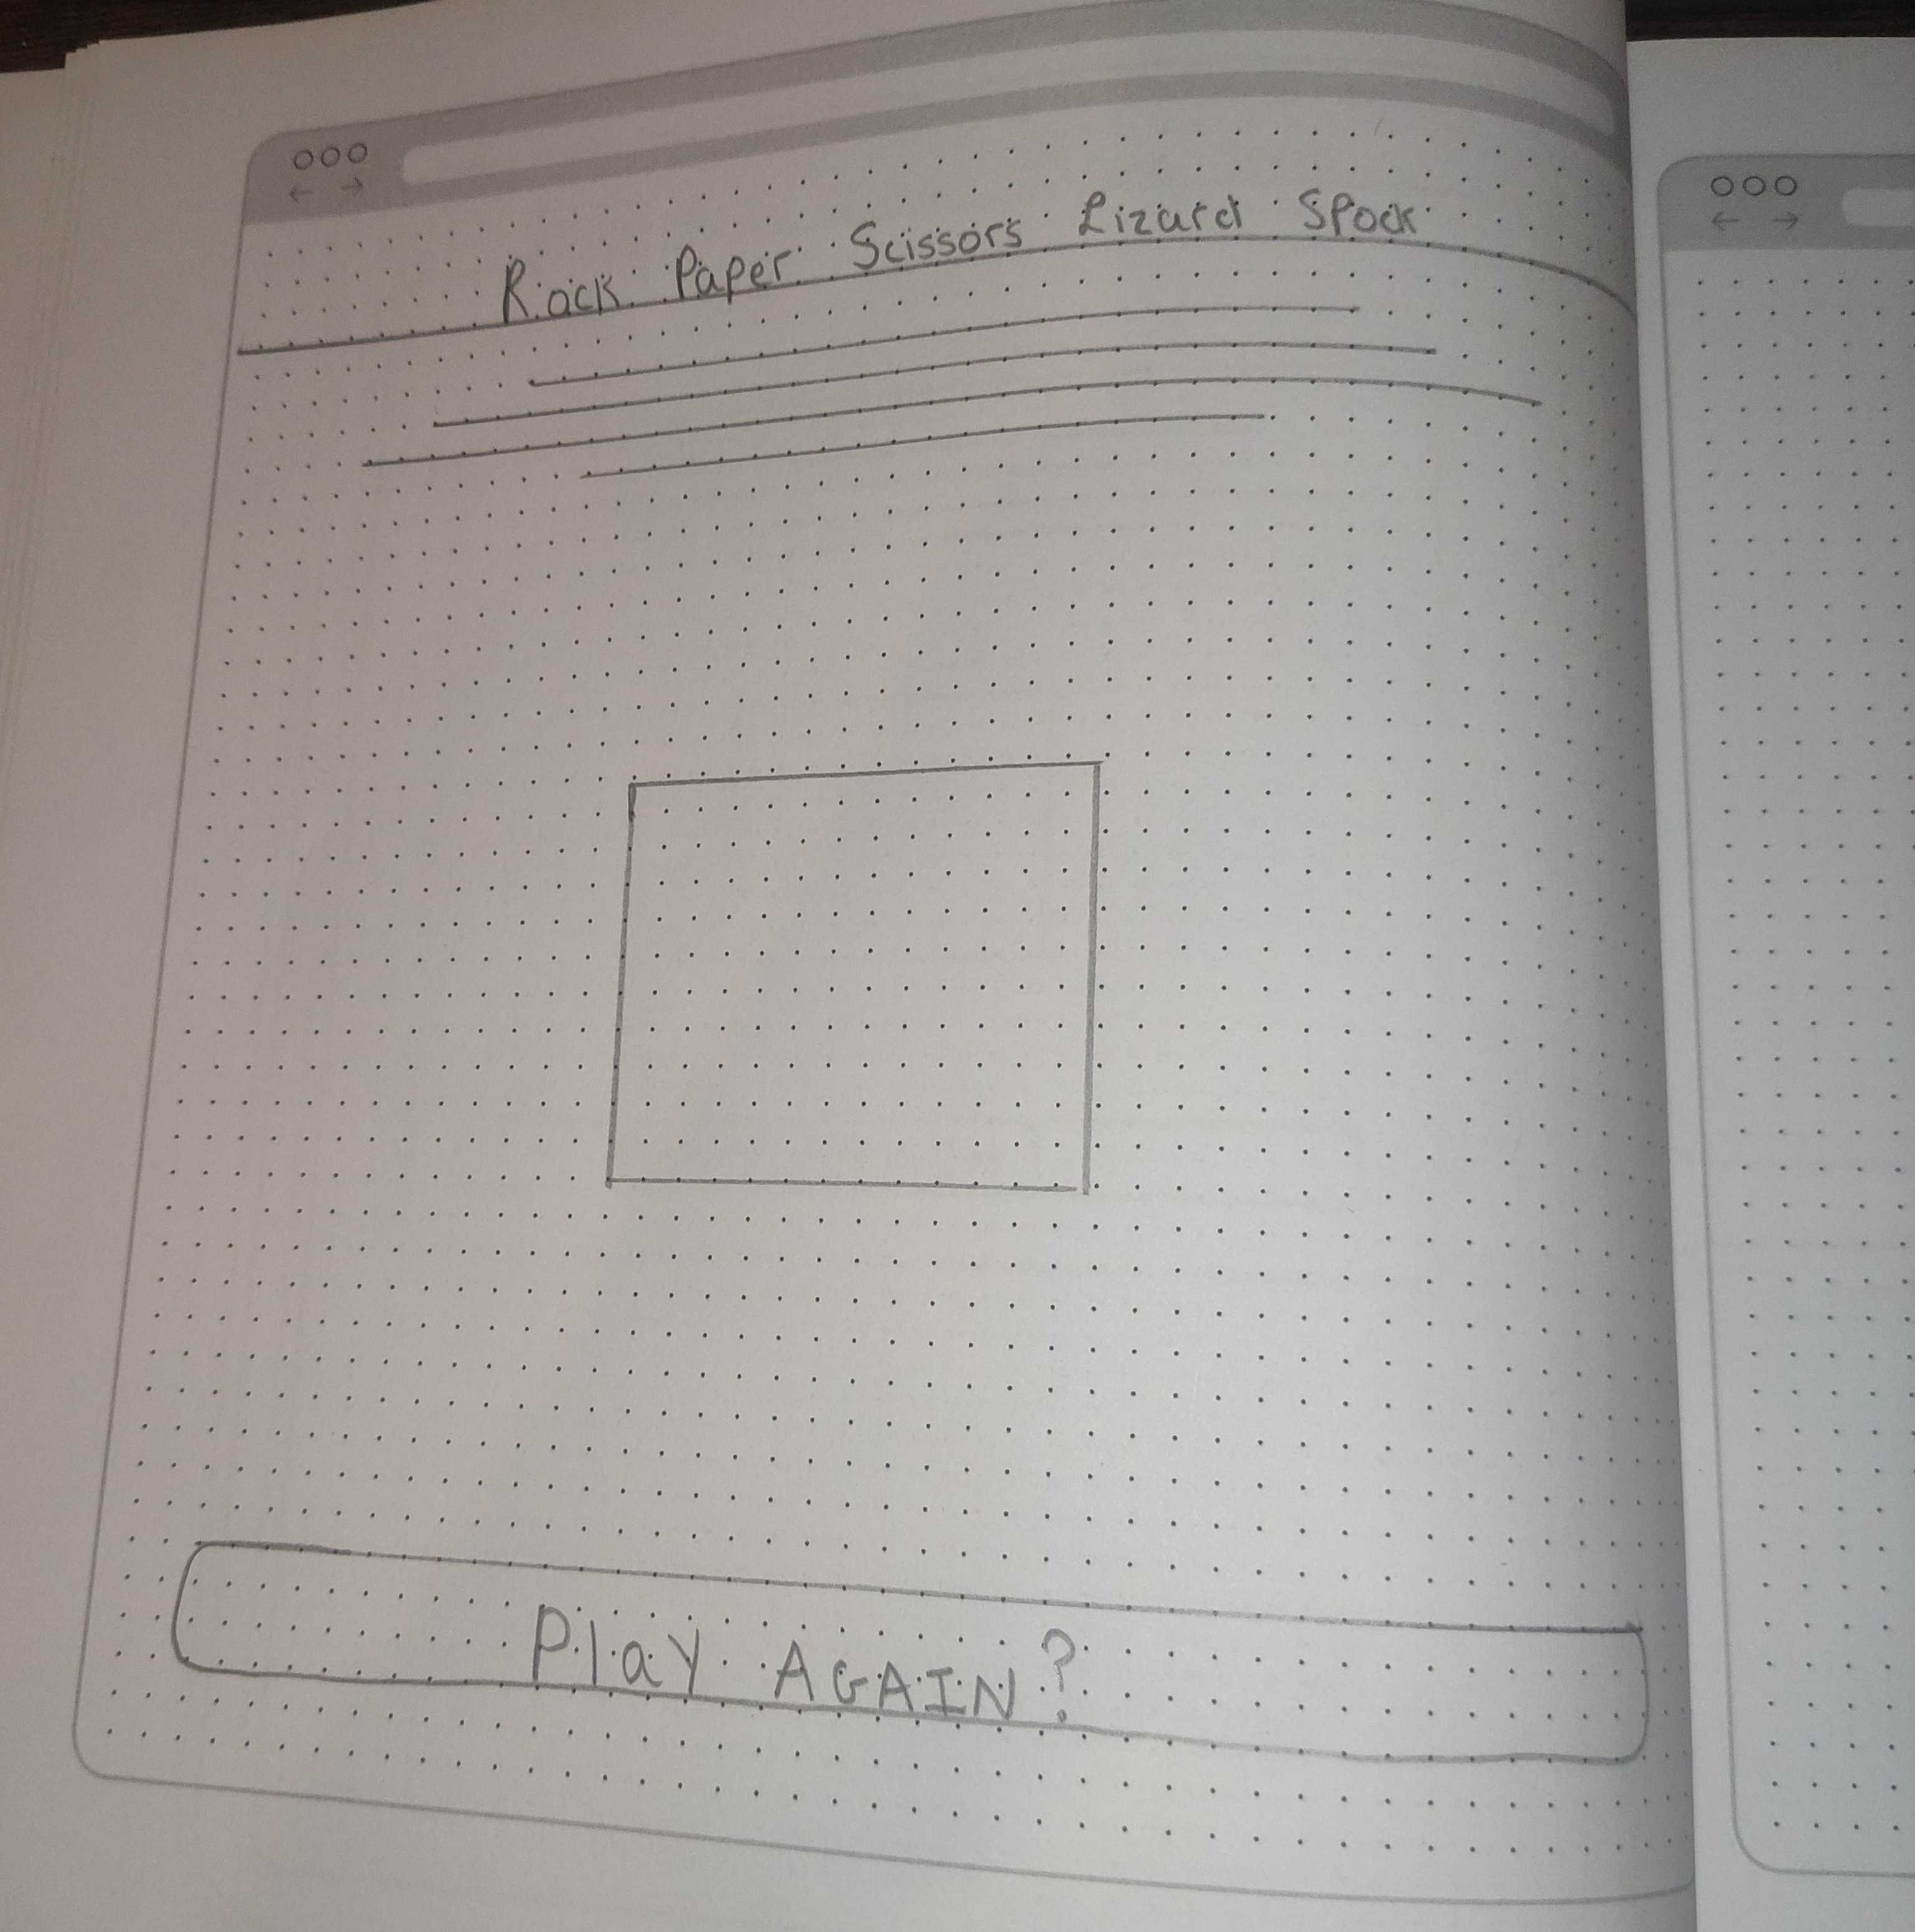 Rock Paper Scissors Lizard Spock
Play AGAIN?